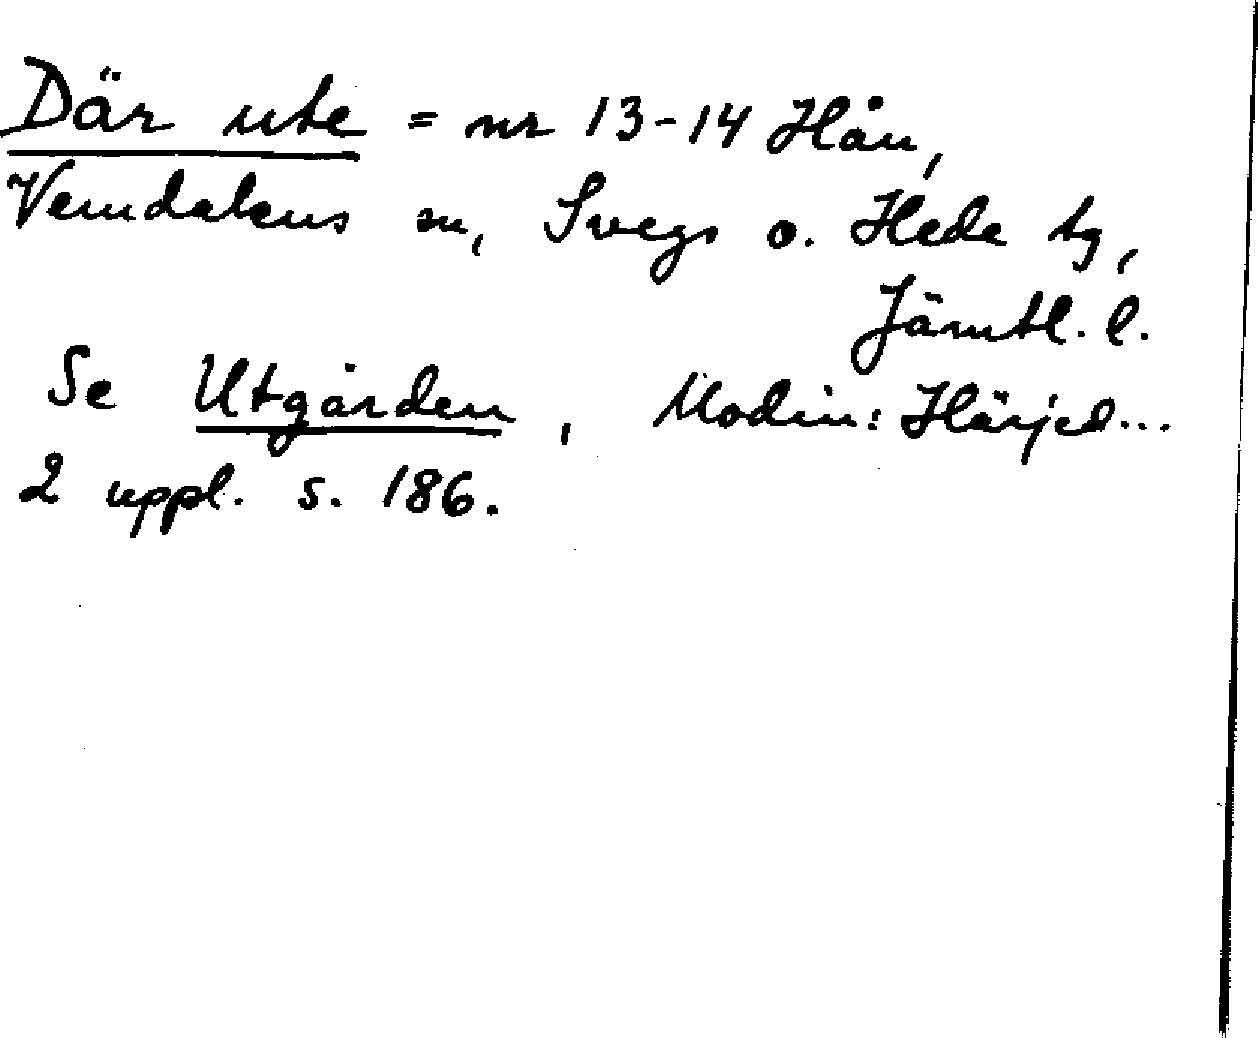 Där ute = nr 13-14 Hån,
Vemdalens sn, Svegs o. Hede tg,
Jämtl. l.
Se Utgården, Modin: Härjed...
2 uppl. s. 186.